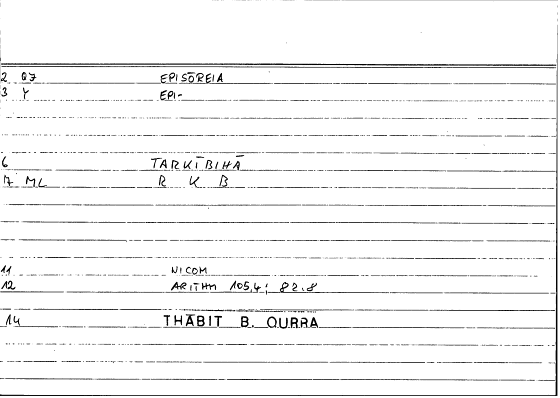 2 07 EPISŌREIA
3 Y EPI-
6 TARKĪBIHĀ
7 ML R K B
11 NICOM
12 ARITHM 105,4; 82.8
14 THĀBIT B. QURRA